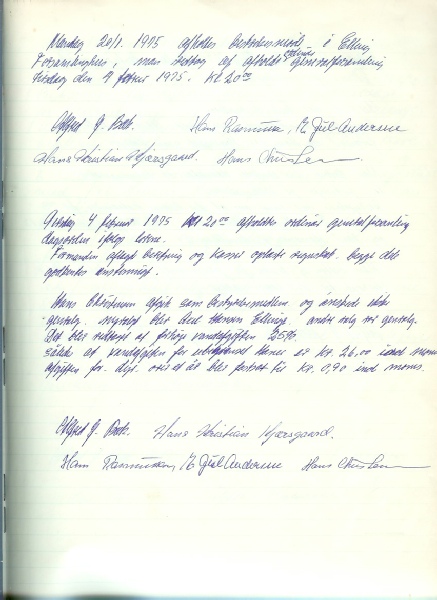 Mandag 20/1. 1975 afholdtes bestyrelsesmøde i Elling
Forsamlingshus, man vedtog at afholde ordinær generalforsamling
Tirsdag den 4 februar 1975. Kl 20.00
Alfred J. Bak. Hans Rasmussen, M. Juul Andersen
Hans Kristian Hjørsgaard. Hans Christensen
Tirsdag 4 februar 1975 Kl 20.00 afholdtes ordinær generalforsamling
dagsorden ifølge lovene.
Formanden aflagde beretning og Kasser oplæste regnskab. begge dele
godkendtes enstemmigt.
Hans Christensen afgik som bestyrelsesmedlem og ønskede ikke
genvalg. nyvalgt blev Elling. andre valg var genvalg.
Det blev vedtaget at forhøje vandafgiften 25%.
således at vandafgiften for er Kr. 26.00 incl moms
afgiften for blev fortsat til Kr. 0,90 incl moms.
Alfred J. Bak. Hans Kristian Hjørsgaard.
Hans Rasmussen, M. Juul Andersen Hans Christensen